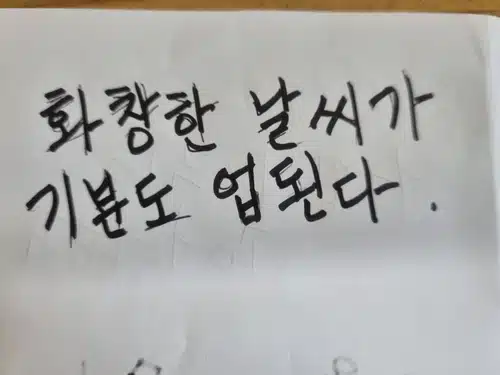 화창한 날씨가
기분도 업된다.